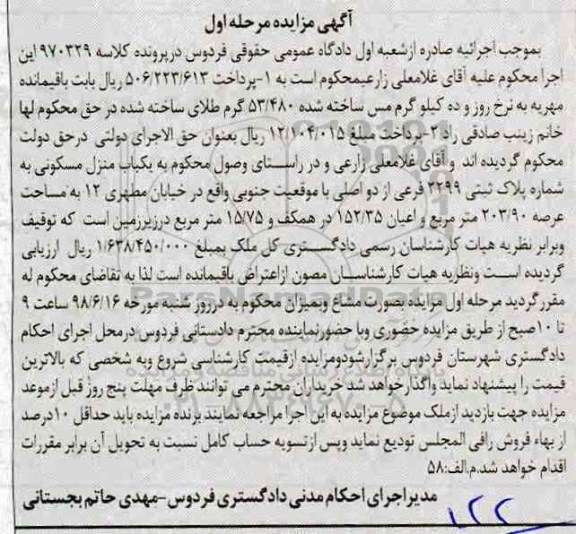 آگهی مزایده مرحله اول
بموجب اجرائیه صادره ازشعبه اول دادگاه عمومی حقوقی فردوس درپرونده کلاسه ۹۷۰۳۲۹ این
اجرا محکوم علیه آقای غلامعلی زارعیمحکوم است به ۱-پرداخت ۵۰۶/۲۲۳/۶۱۳ ریال بابت باقیمانده
مهریه به نرخ روز و ده کیلو گرم مس ساخته شده ۵۳/۴۸۰ گرم طلای ساخته شده در حق محکوم لها
خانم زینب صادقی راد ۲-پرداخت مبلغ ۱۲/۱۰۴/۰۱۵ ریال بعنوان حق الاجرای دولتی درحق دولت
محکوم گردیده اند و آقای غلامعلی زارعی و در راستای وصول محکوم به یکباب منزل مسکونی به
شماره پلاک ثبتی ۲۲۹۹ فرعی از دو اصلی با موقعیت جنوبی واقع در خیابان مطهری ۱۲ به مساحت
عرصه ۲۰۳/۹۰ متر مربع و اعیان ۱۵۲/۳۵ در همکف و ۱۵/۷۵ متر مربع درزیرزمین است که توقیف
وبرابر نظریه هیات کارشناسان رسمی دادگستری کل ملک بمبلغ ۱/۶۳۸/۴۵۰/۰۰۰ ریال ارزیابی
گردیده است ونظریه هیات کارشناسان مصون ازاعتراض باقیمانده است لذا به تقاضای محکوم له
مقرر گردید مرحله اول مزایده بصورت مشاع وبمیزان محکوم به درروز شنبه مورخه ۹۸/۶/۱۶ ساعت ۹
تا ۱۰صبح از طریق مزایده حضوری وبا حضورنماینده محترم دادستانی فردوس درمحل اجرای احکام
دادگستری شهرستان فردوس برگزارشودومزایده ازقیمت کارشناسی شروع وبه شخصی که بالاترین
قیمت را پیشنهاد نماید واگذارخواهد شد خریداران محترم می توانند ظرف مهلت پنج روز قبل ازموعد
مزایده جهت بازدید ازملک موضوع مزایده به این اجرا مراجعه نمایند برنده مزایده باید حداقل ۱۰درصد
از بهاء فروش رافی المجلس تودیع نماید وپس ازتسویه حساب کامل نسبت به تحویل آن برابر مقررات
اقدام خواهد شد.م.الف:۵۸
مدیراجرای احکام مدنی دادگستری فردوس-مهدی حاتم بجستانی
۱۲۲